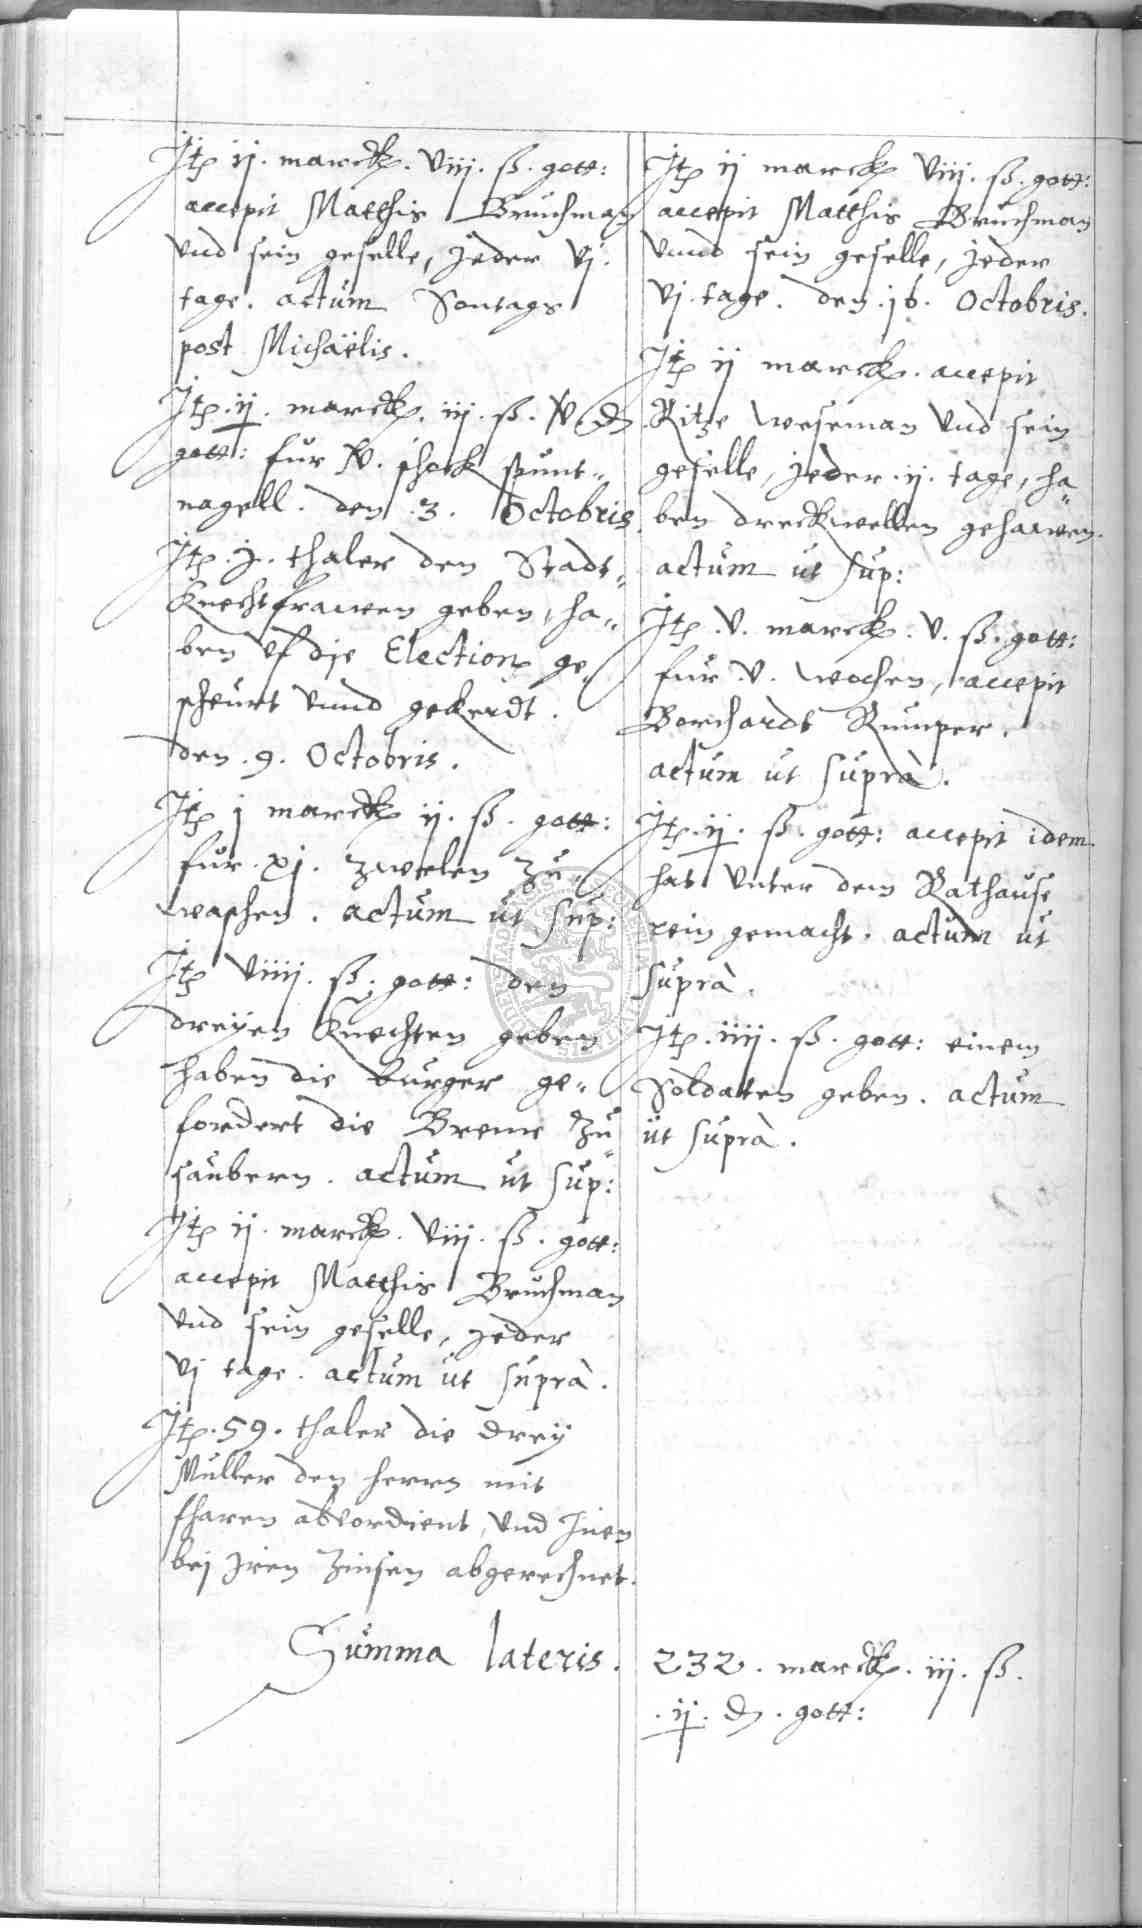 Itz ij. marck. viij. ß. gott:
accepit Matthis Bruchman
vnd sein geselle, jeder vj.
tage. actum Sontags
post Michaëlis.
Itz. ij. marck. iij. ß. iv. d
gott: fur iv. schock spunt=
nagell. den .3. Octobris
Itz. j. thaler den Stadt=
knechtfrawen geben, ha=
ben vf die Election ge=
scheurt vnnd gekerdt.
den .9. Octobris.
Itz j marck ij. ß. gott:
fur. xj. zwelen zu=
waschen. actum ut sup:
Itz viiij. ß. gott: den
dreyen knechten geben
haben die burger ge=
fordert die Breme zu
saubern. actum ut sup:
Itz ij. marck. viij. ß. gott:
accepit Matthis Bruchman
vnd sein geselle, jeder
vj tage. actum ut suprà.
Itz. 59. thaler die drey
Muller den herrn mit
fharen abverdient, vnd Inen
bej Iren Zinsen abgerechnet.
Summa lateris.
Itz ij marck viij. ß. gott:
accepit Matthis Bruchman
vnnd sein geselle, jeder
vj. tage. den .16. Octobris.
Itz ij marck. accepit
Ritze Weseman vnd sein
geselle, jeder. ij. tage, ha=
ben dreckwellen gehawen.
actum ut sup:
Itz .v. marck. v. ß. gott:
fur .v. wochen, accepit
Borchardt Rumper,
actum ut suprà.
Itz. ij. ß. gott: accepit idem
hat vnter dem Rathause
rein gemacht. actum ut
suprà.
Itz. iiij. ß. gott: einem
Soldatten geben. actum
ut suprà.
232. marck. iij. ß.
.ij. d. gott: